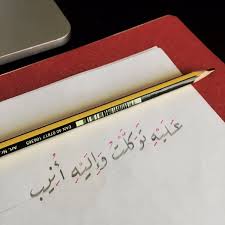 عَلَيْهِ تَوَكَّلْتُ وَإِلَيْهِ أُنِيبُ